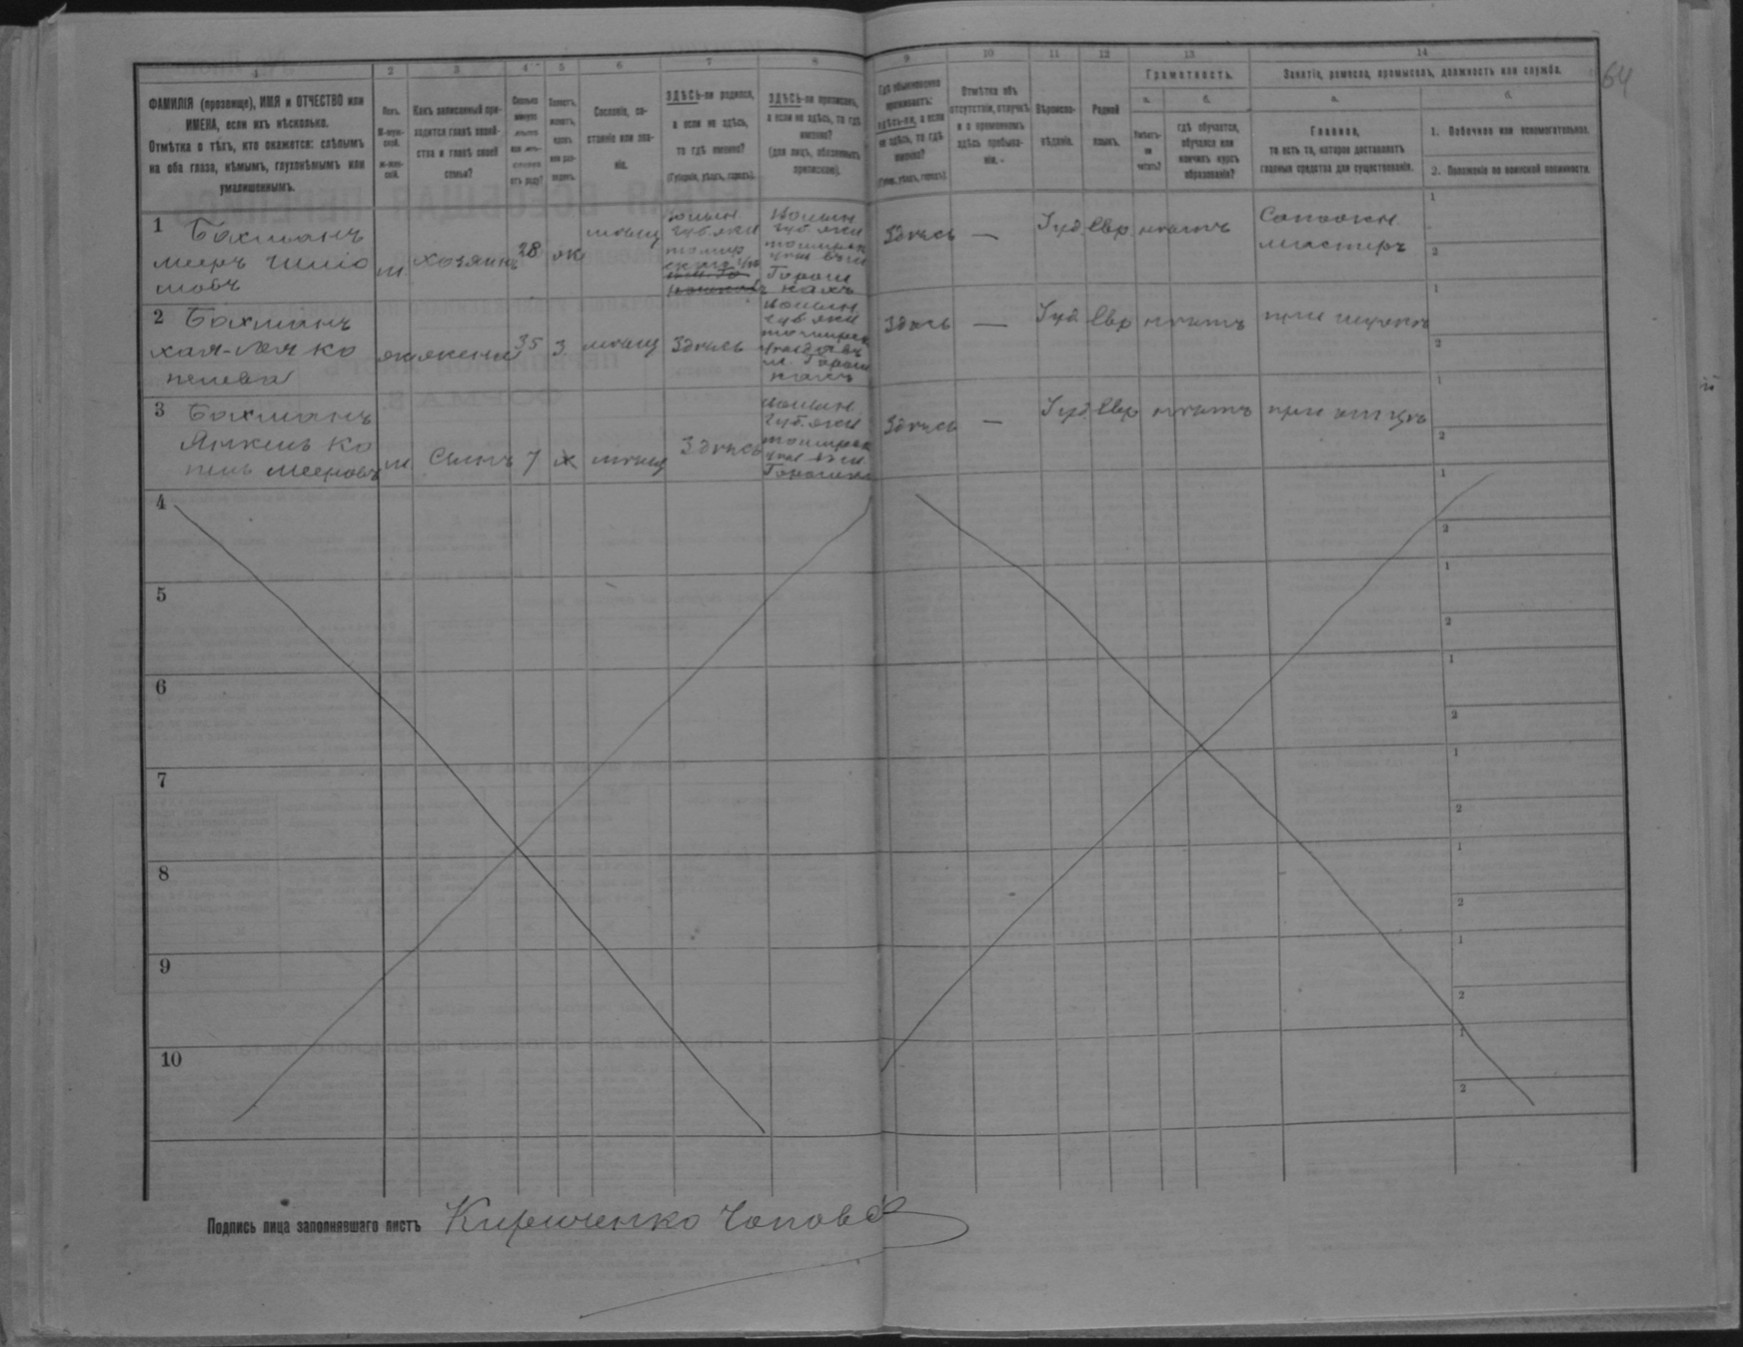 1 2 3 4 5 6 7 8 9 10 11 12 13 14
ФАМИЛІЯ (прозвище), ИМЯ и ОТЧЕСТВО или
ИМЕНА, если ихъ нѣсколько.
Отмѣтка о тѣхъ, кто окажется: слѣпымъ
на оба глаза, нѣмымъ, глухонѣмымъ или
умалишеннымъ.
Полъ.
М-муж-
ской.
Ж-жен-
скій.
Какъ записанный при-
ходится главѣ хозяй-
ства и главѣ своей
семьи?
Сколько
минуло
лѣтъ
или мѣ-
сяцевъ
отъ роду?
Холостъ,
женатъ,
вдовъ
или раз-
веденъ.
Сословіе, со-
стояніе или зва-
ніе.
ЗДѢСЬ-ли родился,
а если не здѣсь,
то гдѣ именно?
(Губернія, уѣздъ, городъ).
ЗДѢСЬ-ли приписанъ,
а если не здѣсь, то гдѣ
именно?
(для лицъ, обязанныхъ
припискою).
Гдѣ обыкновенно
проживаетъ:
здѣсь-ли, а если
не здѣсь, то гдѣ
именно?
(Губер., уѣздъ, городъ).
Отмѣтка объ
отсутствіи, отлучкѣ
и о временномъ
здѣсь пребыва-
ніи.
Вѣроиспо-
вѣданіе.
Родной
языкъ.
Грамотность.
а.
Умѣетъ-
ли
читать?
б.
гдѣ обучается,
обучался или
кончилъ курсъ
образованія?
Занятіе, ремесло, промыселъ, должность или служба.
а.
Главное,
то есть то, которое доставляетъ
главныя средства для существованія.
б.
1. Побочное или вспомогательное.
2. Положеніе по воинской повинности.
64
1 Бахманъ
Мееръ Шліо
мовъ
м хозяинъ 38 ж мѣщ
Волын
губ Жи
томир
Волын
губ Жи
Горош
кахъ
Здѣсь — Іуд. Евр. нѣтъ
Сапожн.
мастеръ
1
2
2 Бахманъ
Хая-Лея Ко
пелева
ж жена 35 з мѣщ Здѣсь
Волын
губ Жи
м. Горош
кахъ
Здѣсь — Іуд Евр нѣтъ при мужѣ
1
2
3 Бахманъ
Янкель Ко
пель Мееровъ
м сынъ 7 х мѣщ Здѣсь
Волын
губ. Жи
Горошка
Здѣсь — Іуд Евр нѣтъ при отцѣ
1
2
4 1
2
5 1
2
6 1
2
7 1
2
8 1
2
9 1
2
10 1
2
Подпись лица заполнявшаго листъ